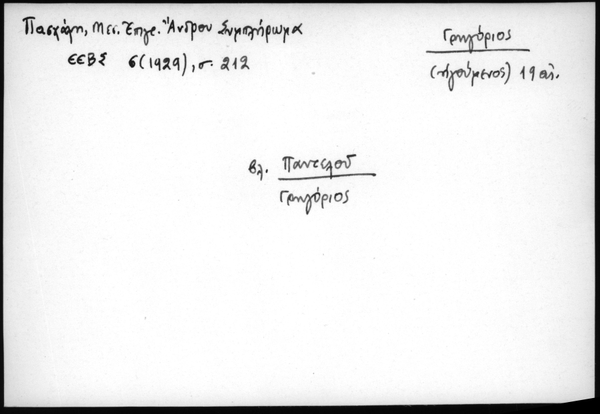 Πασχάλη, Μεσ. Ἐπιγρ. Ἄνδρου Συμπλήρωμα
ΕΕΒΣ 6 (1929), σ. 212
Γρηγόριος
(ἡγούμενος) 19 αἰ.
βλ. Παντελοῦ
Γρηγόριος